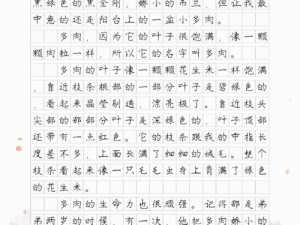 黑绿色的黑金刚，娇小的吊兰，但让我最
中意的还是阳台上的一盆小多肉。
多肉，因为它的叶子很饱满，像一颗
颗肉粒一样，所以它的名字叫多肉。
多肉的叶子像一颗颗花生米一样饱满
，靠近枝条根的一部分叶子是碧绿色的
，看起来晶莹剔透，漂亮极了。靠近枝头
尖部的那一部分叶子是深绿色的，叶子顶部
还带有一点红色。它的枝条跟我的中指长
度差不多，上面长满了细如的绒毛。整个
枝条看起来像一只毛毛虫身上背满了绿色
的花生米。
多肉的生命力也很顽强。记得那是弟
弟两岁的时候，有一次，他把多肉娇小的